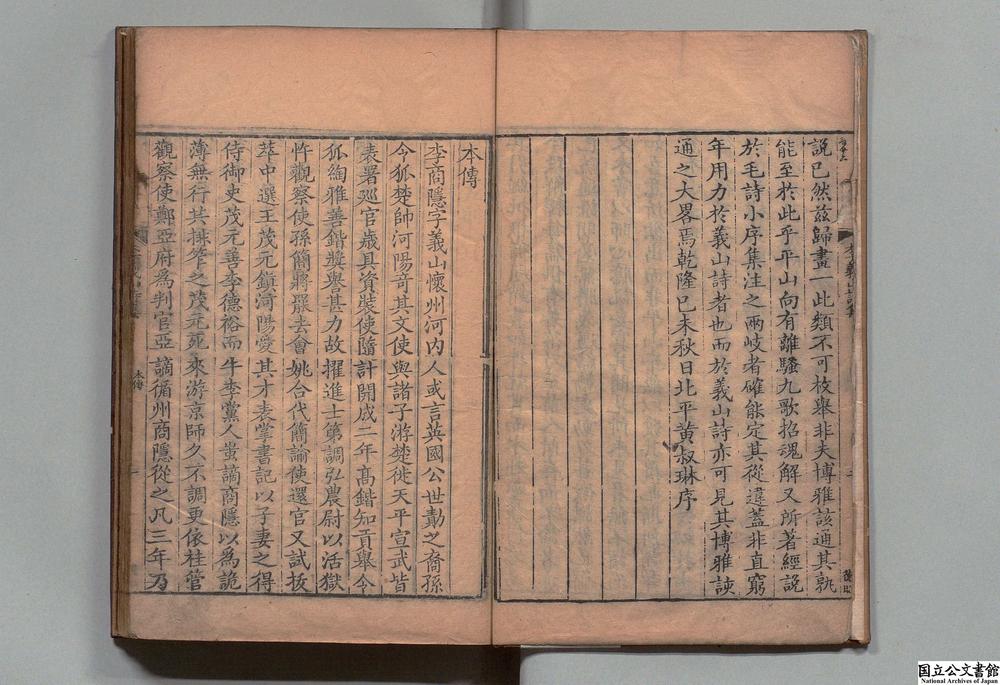 說已然茲歸畫一此類不可枚舉非夫博雅該通其孰
能至於此乎平山向有離騷九歌招魂解又所著經說
於毛詩小序集注之兩岐者確能定其從違蓋非直窮
年用力於義山詩者也而於義山詩亦可見其博雅該
通之大畧焉乾隆己未秋日北平黃叔琳序
本傳
李商隱字義山懷州河內人或言英國公世勣之裔孫
令狐楚帥河陽奇其文使與諸子游楚徙天平宣武皆
表署巡官歲具資裝使隨計開成二年高鍇知貢舉令
狐綯雅善鍇奬譽甚力故擢進士第調弘農尉以活獄
忤觀察使孫簡將罷去會姚合代簡諭使還官又試拔
萃中選王茂元鎮河陽愛其才表掌書記以子妻之得
侍御史茂元善李德裕而牛李黨人蚩謫商隱以為詭
薄無行共排笮之茂元死來游京師久不調更依桂管
觀察使鄭亞府為判官亞謫循州商隱從之凡三年乃
本傳
国立公文書館
National Archives of Japan